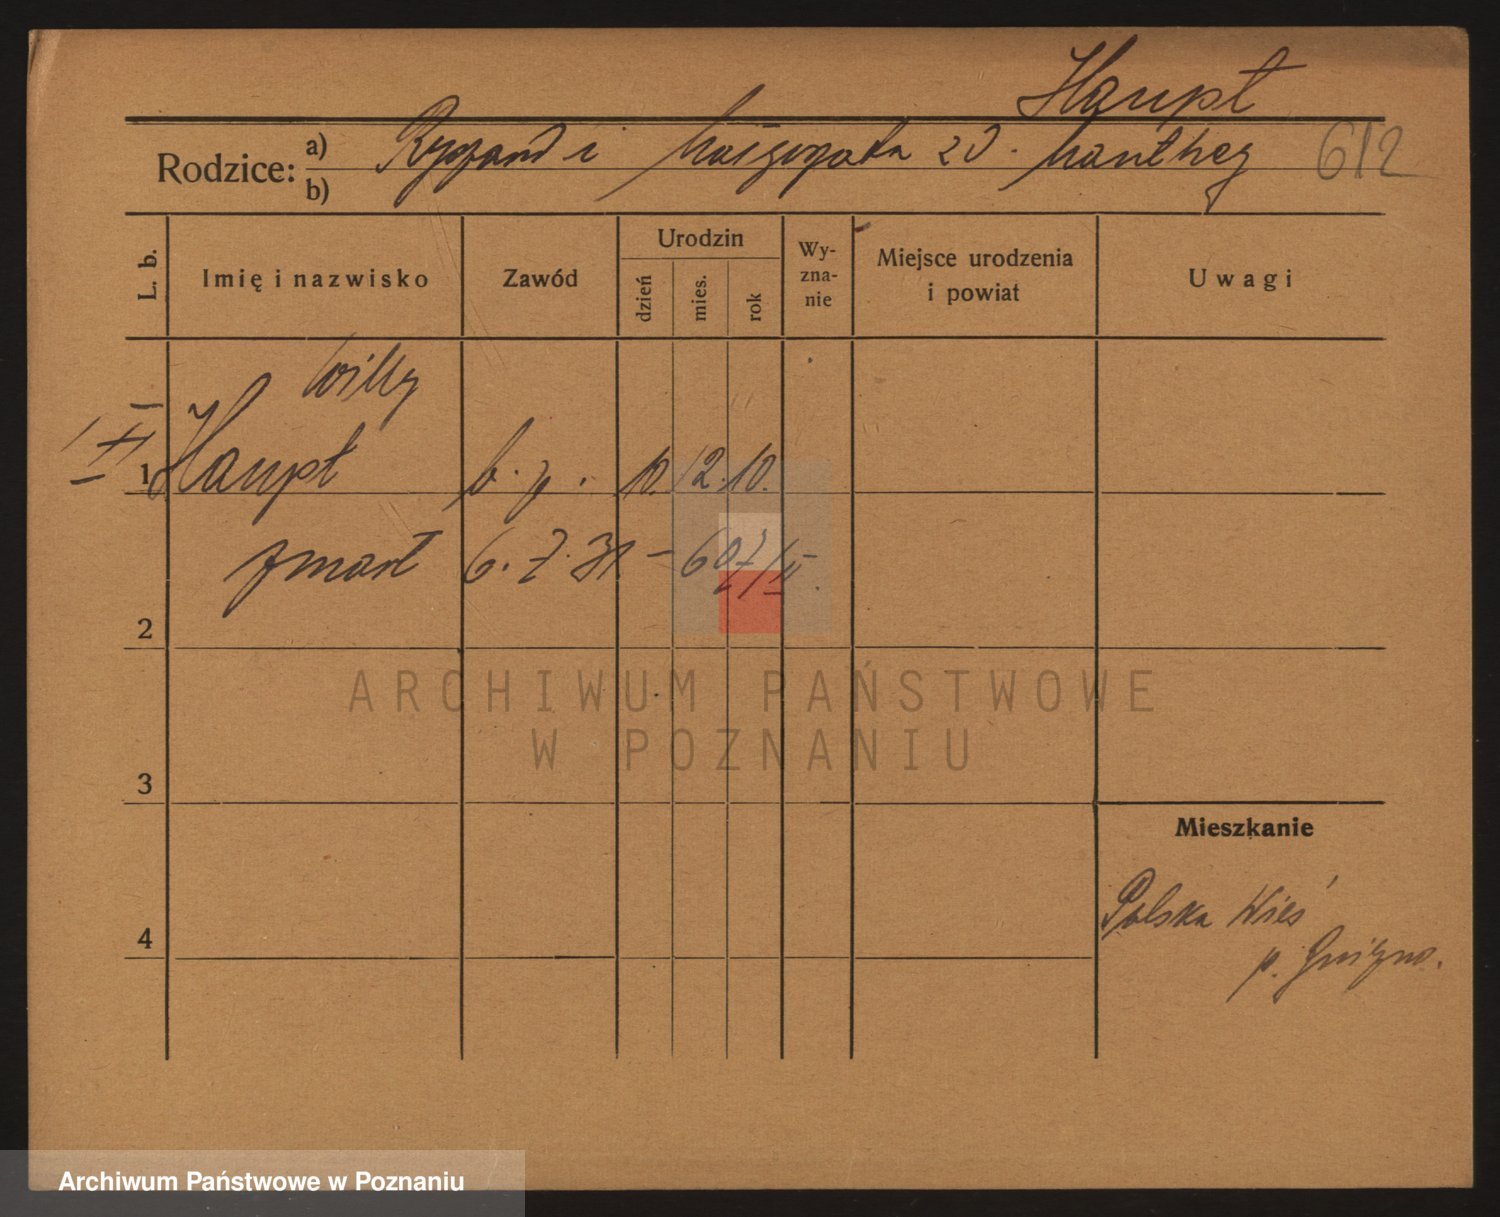 Haupt
Rodzice: a) Ryszard i Małgorzata z d. Manthey 612
b)
L. b. Imię i nazwisko Zawód Urodzin dzień mies. rok Wy-zna-nie Miejsce urodzenia i powiat Uwagi
Willy
1 Haupt b. p. 10. 12. 10.
zmarł 6. 7. 31 –
2
ARCHIWUM PAŃSTWOWE
W POZNANIU
3
Mieszkanie
Polska Wieś
4
p. Gniezno.
Archiwum Państwowe w Poznaniu